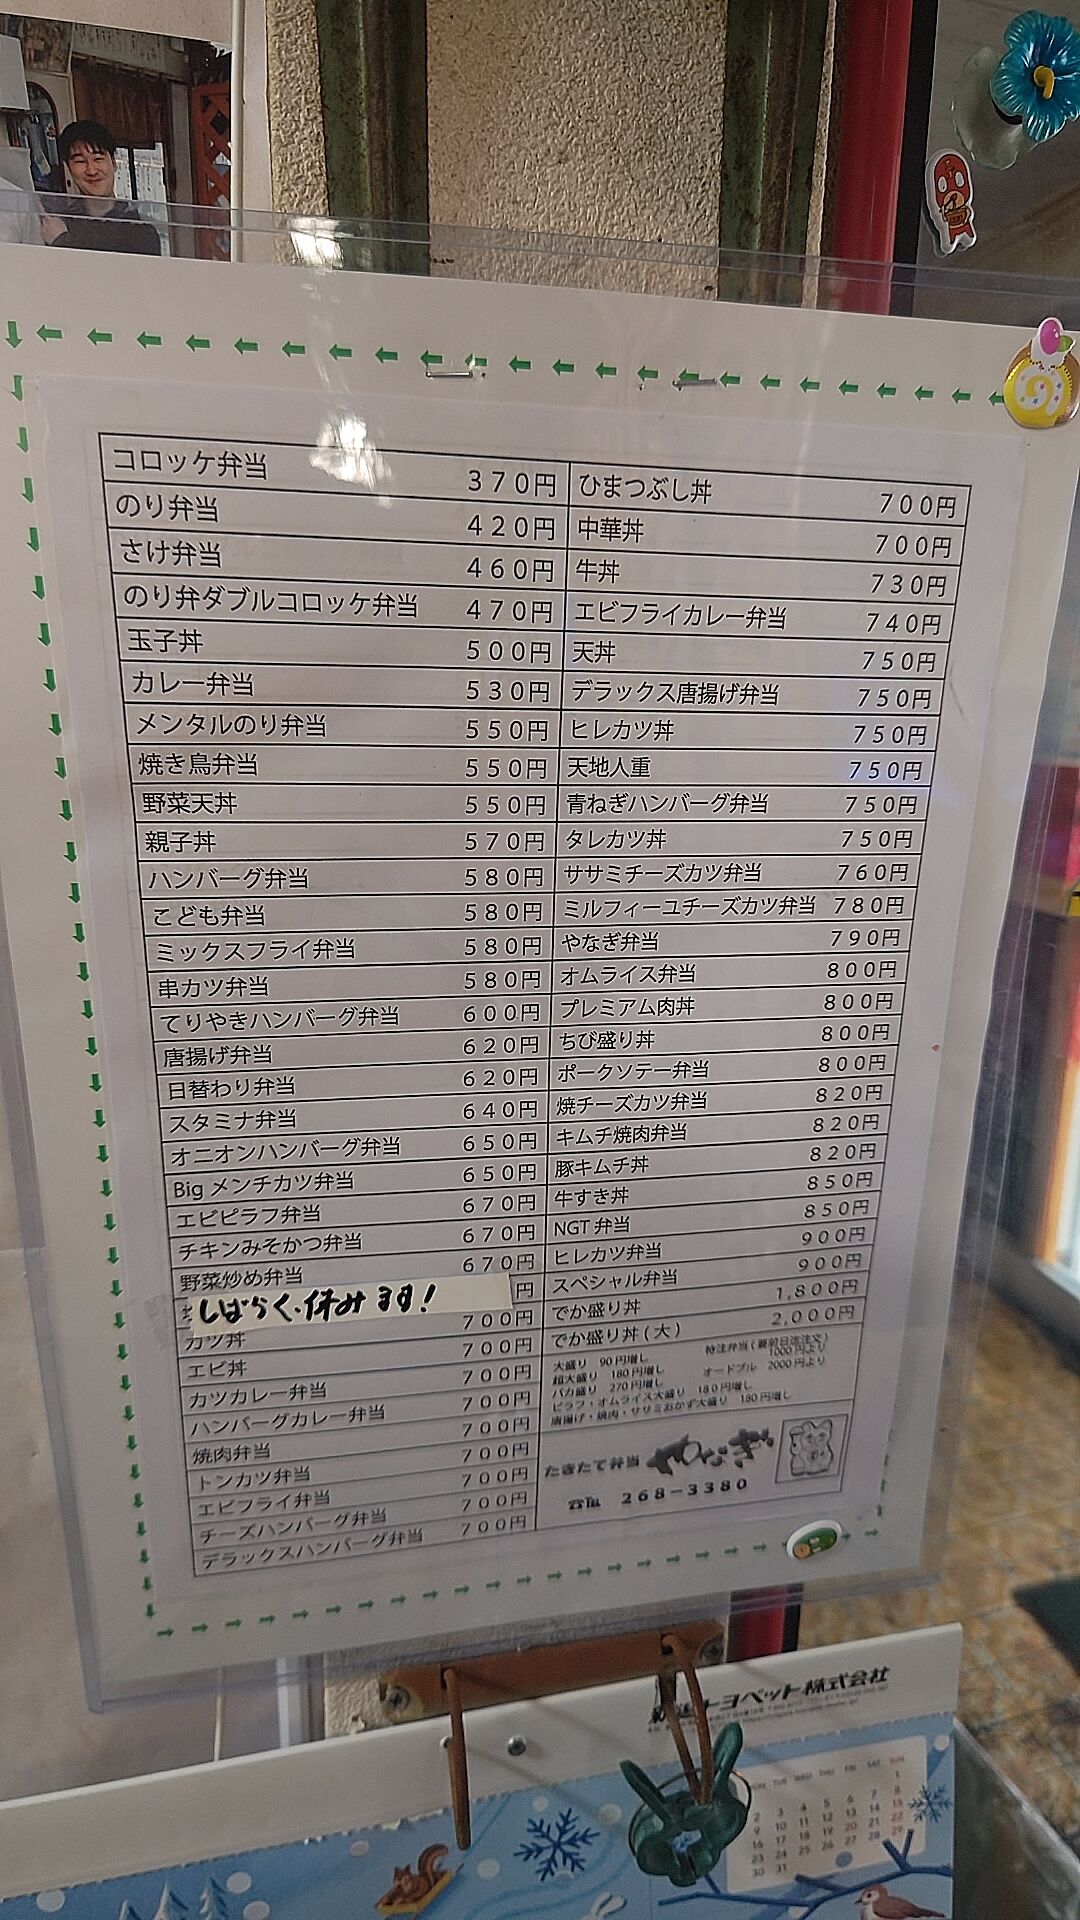 コロッケ弁当 370円
のり弁当 420円
さけ弁当 460円
のり弁ダブルコロッケ弁当 470円
玉子丼 500円
カレー弁当 530円
メンタルのり弁当 550円
焼き鳥弁当 550円
野菜天丼 550円
親子丼 570円
ハンバーグ弁当 580円
こども弁当 580円
ミックスフライ弁当 580円
串カツ弁当 580円
てりやきハンバーグ弁当 600円
唐揚げ弁当 620円
日替わり弁当 620円
スタミナ弁当 640円
オニオンハンバーグ弁当 650円
Big メンチカツ弁当 650円
エビピラフ弁当 670円
チキンみそかつ弁当 670円
野菜炒め弁当 670円
しばらく休みます! 円
カツ丼 700円
エビ丼 700円
カツカレー弁当 700円
ハンバーグカレー弁当 700円
焼肉弁当 700円
トンカツ弁当 700円
エビフライ弁当 700円
チーズハンバーグ弁当 700円
デラックスハンバーグ弁当 700円
ひまつぶし丼 700円
中華丼 700円
牛丼 730円
エビフライカレー弁当 740円
天丼 750円
デラックス唐揚げ弁当 750円
ヒレカツ丼 750円
天地人重 750円
青ねぎハンバーグ弁当 750円
タレカツ丼 750円
ササミチーズカツ弁当 760円
ミルフィーユチーズカツ弁当 780円
やなぎ弁当 790円
オムライス弁当 800円
プレミアム肉丼 800円
ちび盛り丼 800円
ポークソテー弁当 800円
焼チーズカツ弁当 820円
キムチ焼肉弁当 820円
豚キムチ丼 820円
牛すき丼 850円
NGT 弁当 850円
ヒレカツ弁当 900円
スペシャル弁当 900円
でか盛り丼 1,800円
でか盛り丼(大) 2,000円
大盛り 90円増し
超大盛り 180円増し
バカ盛り 270円増し
ピラフ・オムライス大盛り 180円増し
唐揚げ・焼肉・ササミおかず大盛り 180円増し
特注弁当(要前日迄注文)
1000円より
オードブル 2000円より
たきたて弁当 やなぎ
☎℡ 268-3380
ヨペット株式会社
TUE WED THU FRI SAT SUN
1
2 3 4 5 6 7 8
9 10 11 12 13 14 15
16 17 18 19 20 21 22
23 24 25 26 27 28 29
30 31